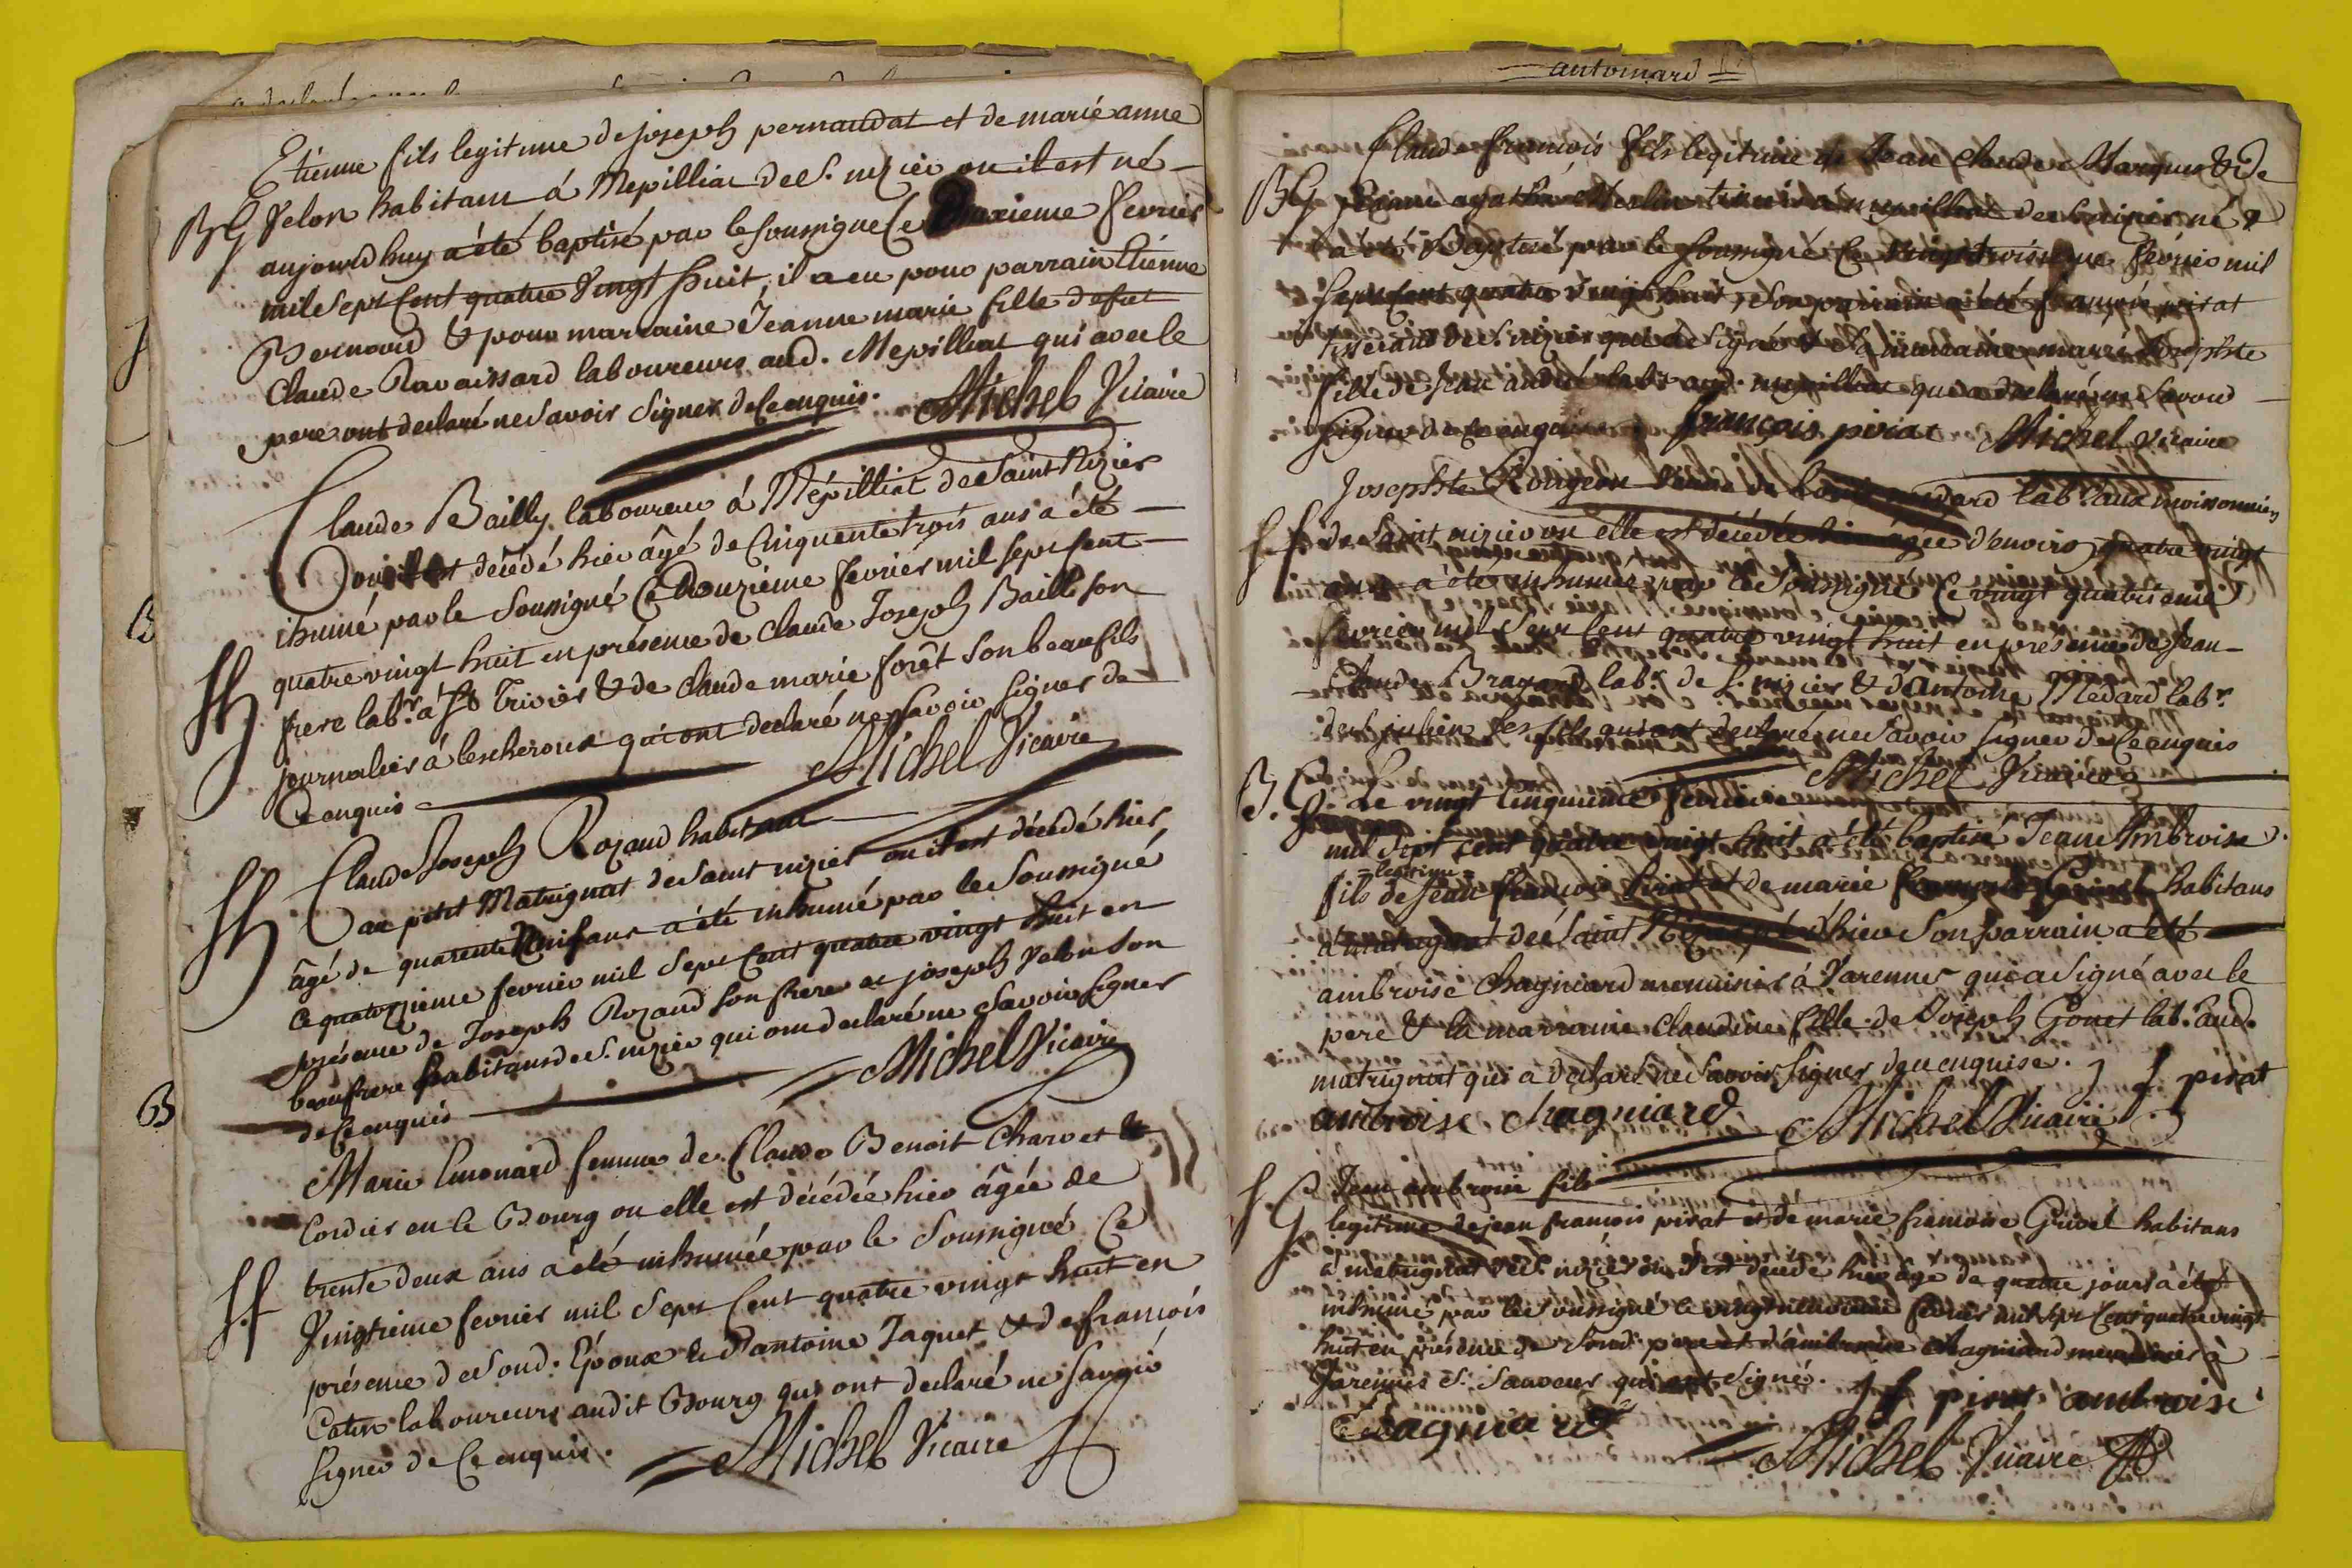 Etienne fils legitime de joseph pernaudat et de marie anne
BG Velon habitans á Mepilliat de S. nizier ou il est né
aujourd huy a été baptisé par le soussigné Ce fevrier
mil sept Cent quatre Vingt huit, il a eu pour parrain Etienne
Bernard & pour marraine Jeanne marie fille de feu
Claude Ravaissard laboureurs aud. Mepilliat qui avec le
pere ont declaré ne savoir signer de Ce enquis. Michel Vicaire
Claude Bailly laboureur á Mépilliat de Saint Nizier
ou il est décédé hier âgé de Cinquente trois ans a été
ihumé par le soussigné Ce Douzieme fevrier mil sept Cent
quatre vingt huit en présence de Claude Joseph Bailly son
frere labr. a St Trivier & de Claude marie forêt son beau fils
journalier á lescheroux qui ont declaré ne savoir signer de
Ce enquis Michel Vicaire
Claude Joseph Rozand habitant
au petit Matrignat de Saint nizier ou il est décédé hier
âgé de quarente Neuf ans a été inhumé par le Soussigné
Ce quatorzieme fevrier mil sept Cent quatre vingt huit en
présence de Joseph Rozand son frere et joseph Velon son
beaufrere habitans de S. nizier qui ont declaré ne savoir signer
de Ce enquis Michel Vicaire
Marie Emonard femme de Claude Benoit Charvet
Cordier en le Bourg ou elle est décédée hier âgée de
trente deux ans a été inhumée par le Soussigné Ce
Vingtieme fevrier mil Sept Cent quatre vingt huit en
présence de Sond. Epoux & d'antoine Jaquet & de francois
Catin laboureurs audit Bourg qui ont declaré ne savoir
signer de Ce enquis. Michel Vicaire
antoinard
Claude francois fils legitime de Jean Claude Marquis & de
BG agathe Merlin né
a été Baptisé par le soussigné Ce Vingt troisieme février mil
Sept Cent quatre Vingt huit, son parrain a été françois pirat
tisserand de S. nizier qui a signé & la marraine marie Josephte
fille de Jean andré labr. aud. mepilliat qui a declaré ne savoir
signer de Ce enquise françois pirat Michel vicaire
Josephte Rongeon Veuve de medard labr. aux moissonniers
de Saint nizier ou elle est décédée hier agée d'environ quatre vingt
ans a été inhumée par le Soussigné Ce vingt quatrieme
fevrier mil Sept Cent quatre vingt huit en présence de Jean
Claude Brazard labr. de S. nizier & d'antoine Medard labr.
de S. julien ses fils qui ont declaré ne savoir signer de Ce enquis
Michel Vicaire
Le vingt Cinquieme fevrier
mil Sept cent quatre vingt huit a été baptisé Jean Ambroise
legitime
fils de Jean francois pirat et de marie francoise Grivel habitans
a matrignat de Saint Nizier né d'hier Son parrain a été
ambroise Chagniard menuisier à Varennes qui a signé avec le
pere & la marraine Claudine fille de Joseph Gonet lab. aud.
matrignat qui a declaré ne savoir signer de Ce enquise. J f pirat
ambroise chagniard Michel Vicaire
Jean ambroise fils
legitime de jean francois pirat et de marie francoise Grivel habitans
a matrignat de S. nizier ou il est décédé hier âgé de quatre jours a été
inhumé par le Soussigné Ce vingt neuvieme fevrier mil sept Cent quatre vingt
huit en présence de Sond. pere et d'ambroise Chagniard menuisier à
Varennes S. Sauveur qui ont signé. J f pirat ambroise
Chagniard
Michel Vicaire